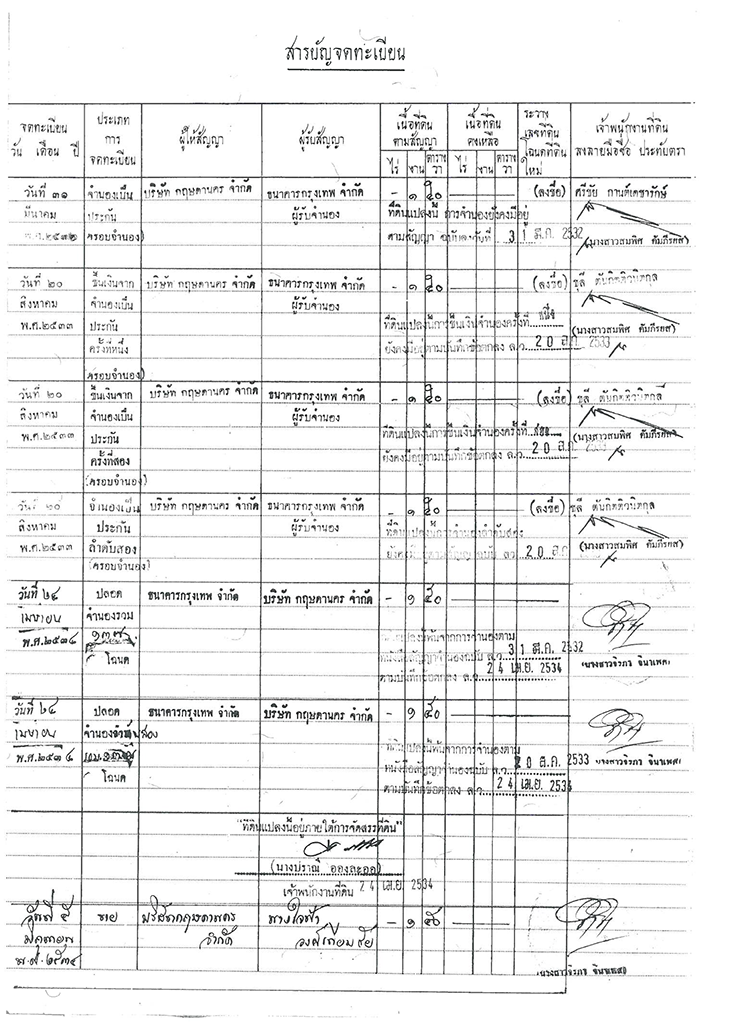 สารบัญจดทะเบียน
จดทะเบียน
วัน เดือน ปี
ประเภท
การ
จดทะเบียน
ผู้ให้สัญญา
ผู้รับสัญญา
เนื้อที่ดิน
ตามสัญญา
ไร่ งาน ตารางวา
เนื้อที่ดิน
คงเหลือ
ไร่ งาน ตารางวา
ระวาง
เลขที่ดิน
โฉนดที่ดิน
ใหม่
เจ้าพนักงานที่ดิน
ลงลายมือชื่อ ประทับตรา
วันที่ ๓๑ จำนองเป็น บริษัท กฤษดานคร จำกัด ธนาคารกรุงเทพ จำกัด - ๑ ๕๐ (ลงชื่อ) ศรีชัย กานต์เตชารักษ์
มีนาคม ประกัน ผู้รับจำนอง ที่ดินแปลงนี้ การจำนองยังคงมีอยู่
พ.ศ.๒๕๓๒ ครอบจำนอง) ตามสัญญา ฉบับลงวันที่ 31 มี.ค. 2532 (นางสาวสมพิศ คัมภีรยส)
วันที่ ๒๐ ขึ้นเงินจาก บริษัท กฤษดานคร จำกัด ธนาคารกรุงเทพ จำกัด - ๑ ๕๐ (ลงชื่อ) ชุลี ตันกิตติวนิตกุล
สิงหาคม จำนองเป็น ผู้รับจำนอง
พ.ศ.๒๕๓๓ ประกัน ที่ดินแปลงนี้การขึ้นเงินจำนองครั้งที่ หนึ่ง (นางสาวสมพิศ คัมภีรยส)
ครั้งที่หนึ่ง ยังคงมีอยู่ตามบันทึกข้อตกลง ล.ว. 20 ส.ค. 2533
ครอบจำนอง)
วันที่ ๒๐ ขึ้นเงินจาก บริษัท กฤษดานคร จำกัด ธนาคารกรุงเทพ จำกัด - ๑ ๕๐ (ลงชื่อ) ชุลี ตันกิตติวนิตกุล
สิงหาคม จำนองเป็น ผู้รับจำนอง
พ.ศ.๒๕๓๓ ประกัน ที่ดินแปลงนี้การขึ้นเงินจำนองครั้งที่ สอง (นางสาวสมพิศ คัมภีรยส)
ครั้งที่สอง ยังคงมีอยู่ตามบันทึกข้อตกลง ล.ว. 20 ส.ค.
(ครอบจำนอง)
วันที่ ๒๐ จำนองเป็น บริษัท กฤษดานคร จำกัด ธนาคารกรุงเทพ จำกัด - ๑ ๕๐ (ลงชื่อ) ชุลี ตันกิตติวนิตกุล
สิงหาคม ประกัน ผู้รับจำนอง ที่ดินแปลงนี้การจำนองลำดับสอง
พ.ศ.๒๕๓๓ ลำดับสอง ยังคงมีอยู่ตามสัญญา ฉบับ ลว. 20 ส.ค. (นางสาวสมพิศ คัมภีรยส)
(ครอบจำนอง)
วันที่ ๒๔ ปลอด ธนาคารกรุงเทพ จำกัด บริษัท กฤษดานคร จำกัด - ๑ ๕๐
เมษายน จำนองรวม
พ.ศ.๒๕๓๔ แปลงนี้พ้นจากการจำนองตาม
โฉนด หนังสือสัญญาจำนองฉบับ ล.ว. 31 มี.ค. 2532
ตามบันทึกข้อตกลง ล.ว. 24 เม.ย. 2534 (นางสาวจิรภา จินาเพศ)
วันที่ ๒๔ ปลอด ธนาคารกรุงเทพ จำกัด บริษัท กฤษดานคร จำกัด - ๑ ๕๐
เมษายน จำนองลำดับสอง
พ.ศ.๒๕๓๔ แปลงนี้พ้นจากการจำนองตาม
โฉนด หนังสือสัญญาจำนองฉบับ ล.ว. 20 ส.ค. 2533 นางสาวจิรภา จินาเพศ)
ตามบันทึกข้อตกลง ล.ว. 24 เม.ย. 2534
"ที่ดินแปลงนี้อยู่ภายใต้การจัดสรรที่ดิน"
(นางปราณี อองละออ)
เจ้าพนักงานที่ดิน 24 เม.ย. 2534
วันที่ ๕ ขาย บริษัทกฤษดานคร นางใจฟ้า - ๑ ๕๐
จำกัด วงศ์เทียมชัย
พ.ศ.๒๕๓๔
(นางสาวจิรภา จินาเพศ)